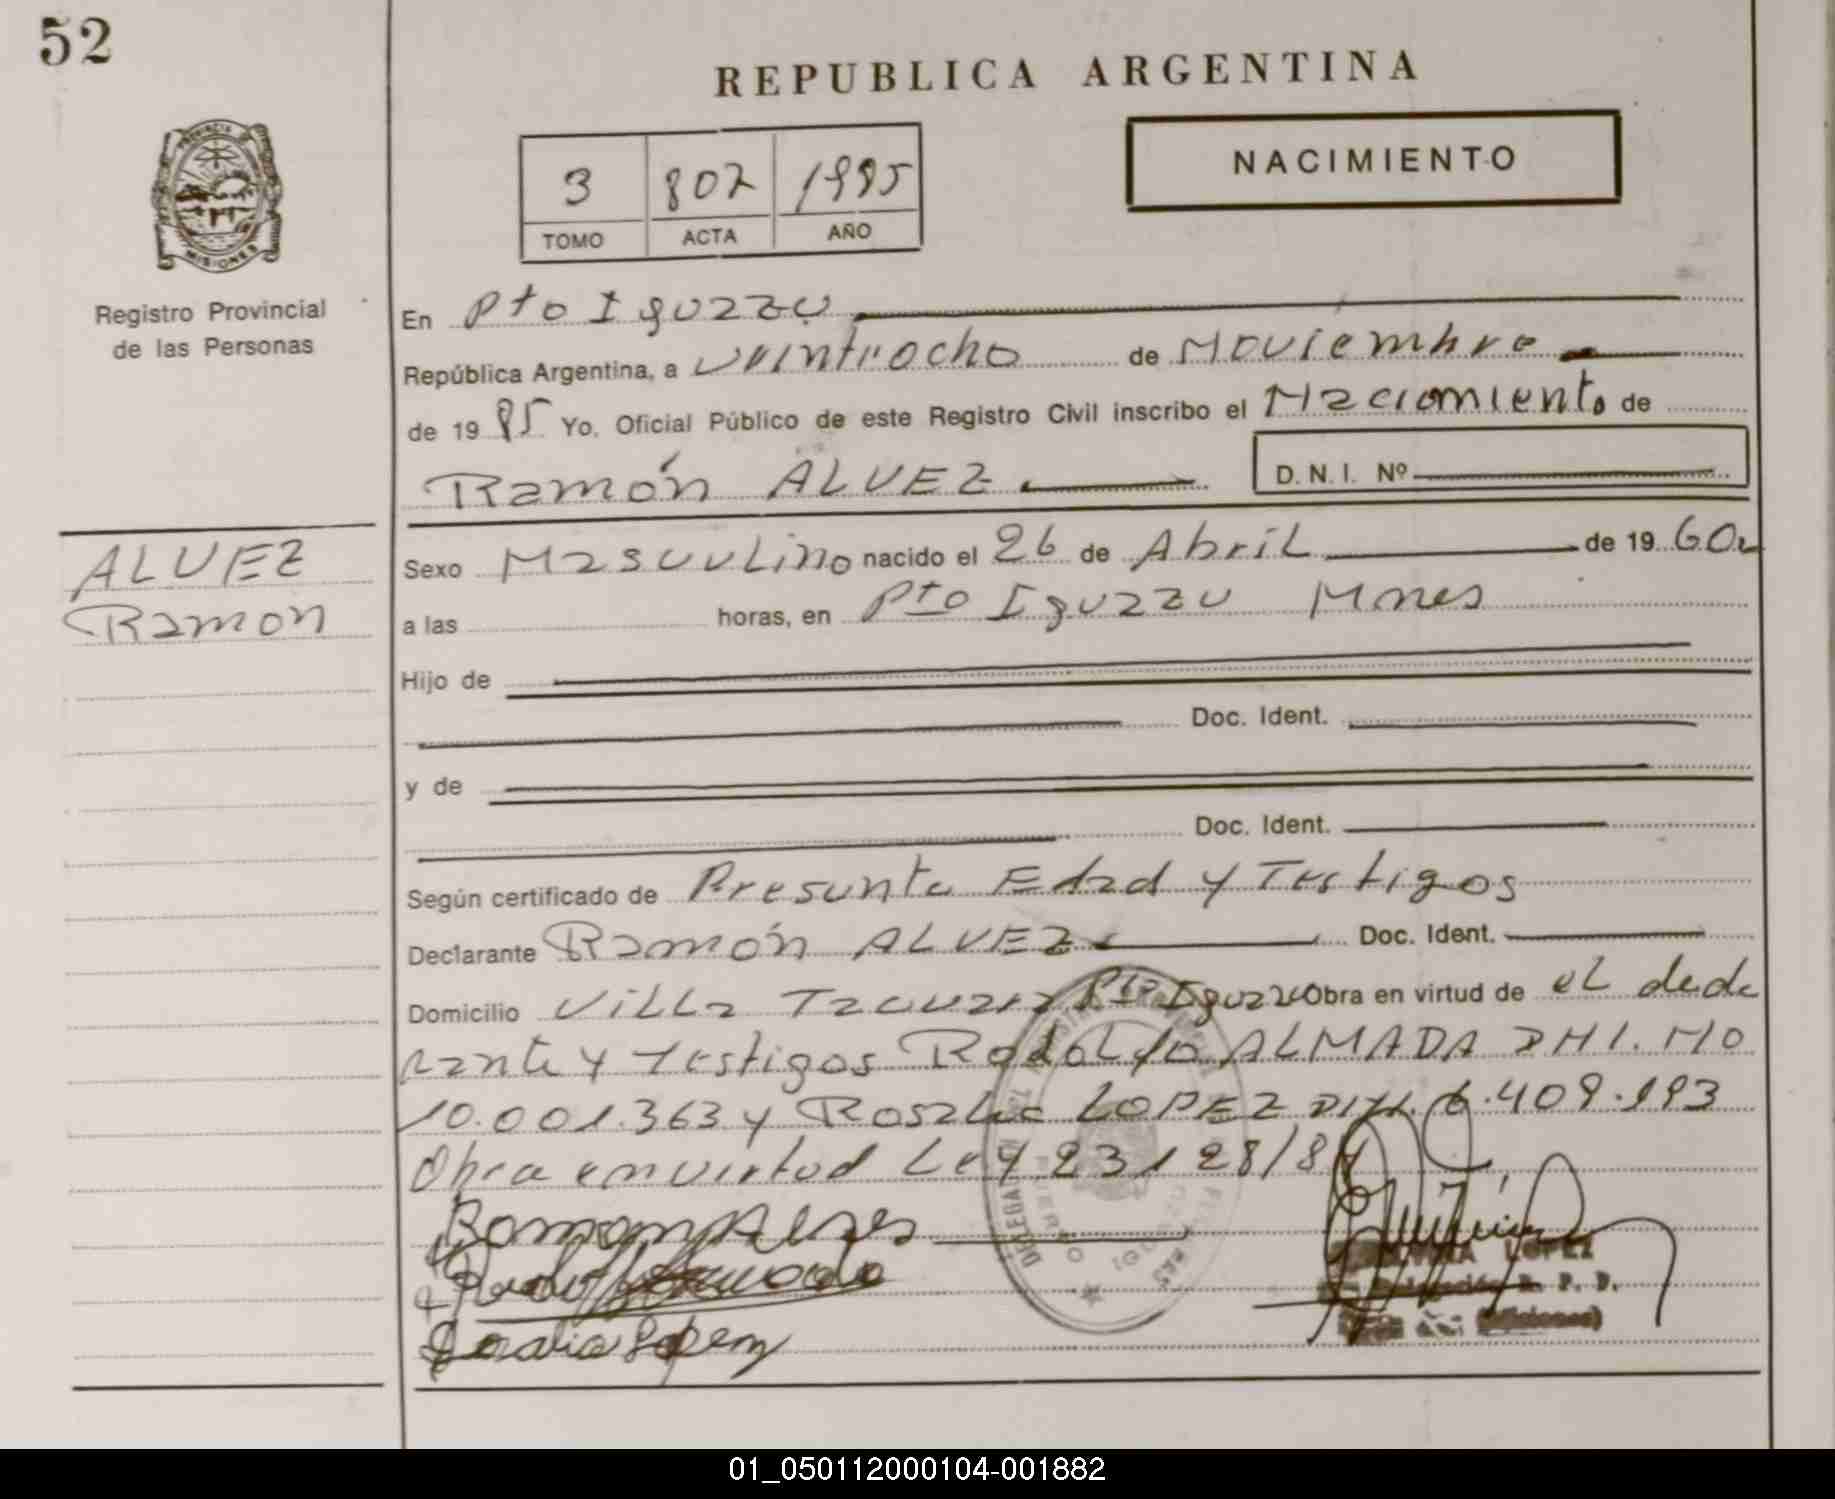 52
REPUBLICA ARGENTINA
PROVINCIA DE MISIONES
Registro Provincial
de las Personas
3 802 1985
TOMO ACTA AÑO
NACIMIENTO
En Pto Iguazu
República Argentina, a veintiocho de Noviembre
de 19 85 Yo, Oficial Público de este Registro Civil inscribo el Naciomiento de
Ramón ALVEZ D.N.I. Nº
ALVEZ
Ramon
Sexo Masuulino nacido el 26 de Abril de 19 60
a las horas, en Pto Iguazu Mnes
Hijo de
Doc. Ident.
y de
Doc. Ident.
Según certificado de Presunta Edad y Testigos
Declarante Ramón ALVEZ Doc. Ident.
Domicilio Villa Pto Iguazu Obra en virtud de el decla
rante y Testigos Rodolfo ALMADA DNI. NO
10.001.363 y Rosalia LOPEZ DNI. 6.409.193
Obra en virtud Ley 23128/84
Ramon Alves
Rosalia Lopez
LOPEZ
Delegación R. P. P.
(Misiones)
01_050112000104-001882